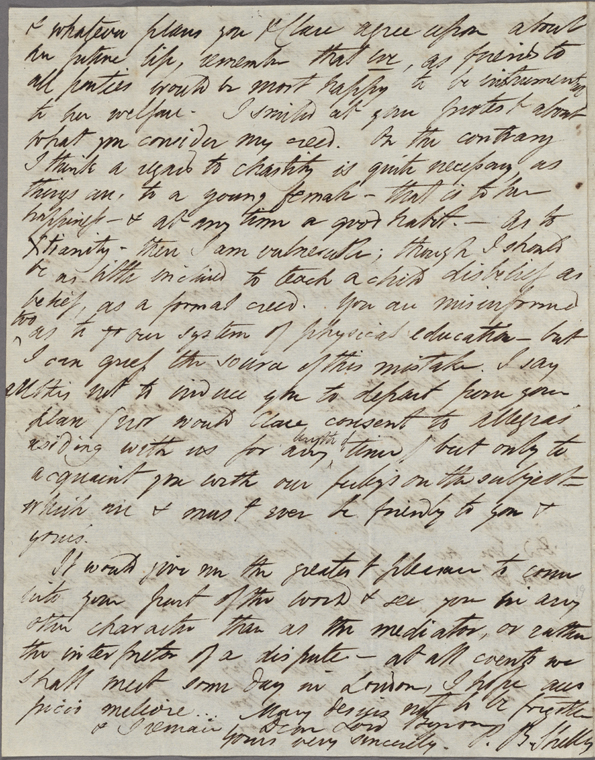 & whatever plans you & Clare agree upon about
her future life, remember that we, as friends to
all parties would be most happy to be instrumental
to her welfare. I smiled at your protest about
what you consider my creed. On the contrary
I think a regard to chastity is quite necessary, as
things are, to a young female – that is to her
happiness – & at any time a good habit. – As to
Xtianity – there I am vulnerable; though I should
be as little inclined to teach a child disbelief as
belief, as a formal creed.. You are misinformed
too
as to our system of physical education – but
I can guess the source of this mistake. I say
all this not to induce you to depart from your
plan (nor would Clare consent to Allegra's
residing with us for any length of time) but only to
acquaint you with our feelings on the subject –
which are & must ever be friendly to you &
yours.
It would give me the greatest pleasure to come
into your part of the world & see you in any
other character than as the mediator, or rather
the interpreter of a dispute – at all events we
shall meet some day in London, I hope aus
picio meliore... Mary desires not to be forgotten
& I remain Dear Lord Byron
Yours very sincerely. P. B. Shelley